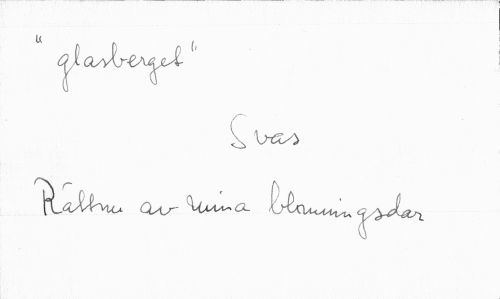 "glasberget"
Svas
Rättnu av mina blomningsdar